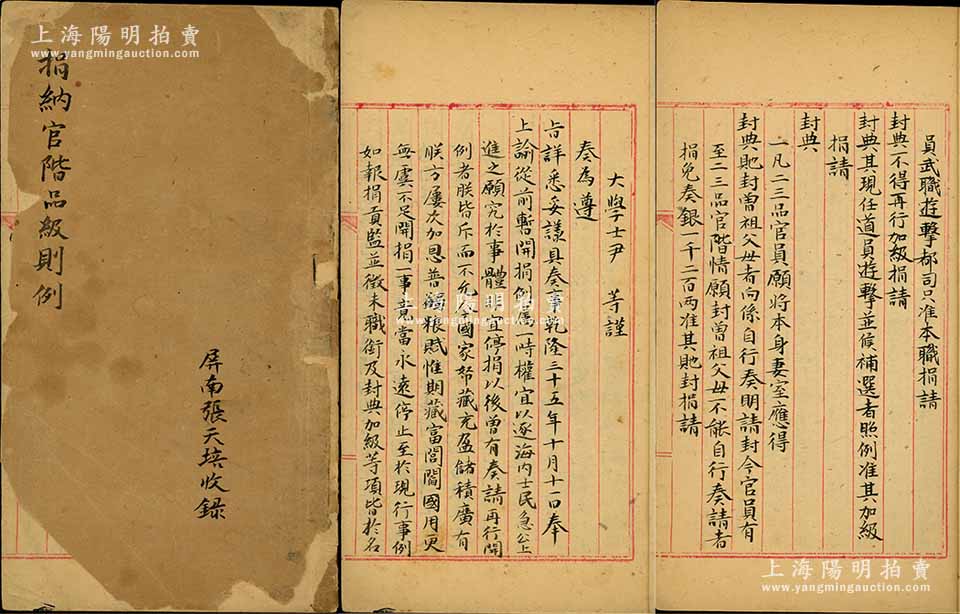 上海陽明拍賣
www.yangmingauction.com
捐納官階品級則例
屏南張天培收錄
上海陽明拍賣
www.yangmingauction.com
大學士尹 等謹
奏為遵
旨詳悉妥議具奏事乾隆三十五年十月十一日奉
上諭從前暫開捐例屬一時權宜以遂海內士民急公上
進之願究於事體非宜停捐以後曾有奏請再行開
例者朕皆斥而不允及國家帑藏充盈儲積廣有
朕方屢次加恩普蠲粮賦惟期藏富閭閻國用更
無虞不足開捐一事竟當永遠停止至於現行事例
如報捐貢監並微末職銜及封典加級等項皆於名
上海陽明拍賣
www.yangmingauction.com
員武職遊擊都司只准本職捐請
封典不得再行加級捐請
封典其現任道員遊擊並候補選者照例准其加級
捐請
封典
一凡二三品官員願將本身妻室應得
封典貤封曾祖父母者向係自行奏明請封今官員有
至二三品官階情願封曾祖父母不能自行奏請者
捐免奏銀一千二百兩准其貤封捐請
上海陽明拍賣
www.yangmingauction.com